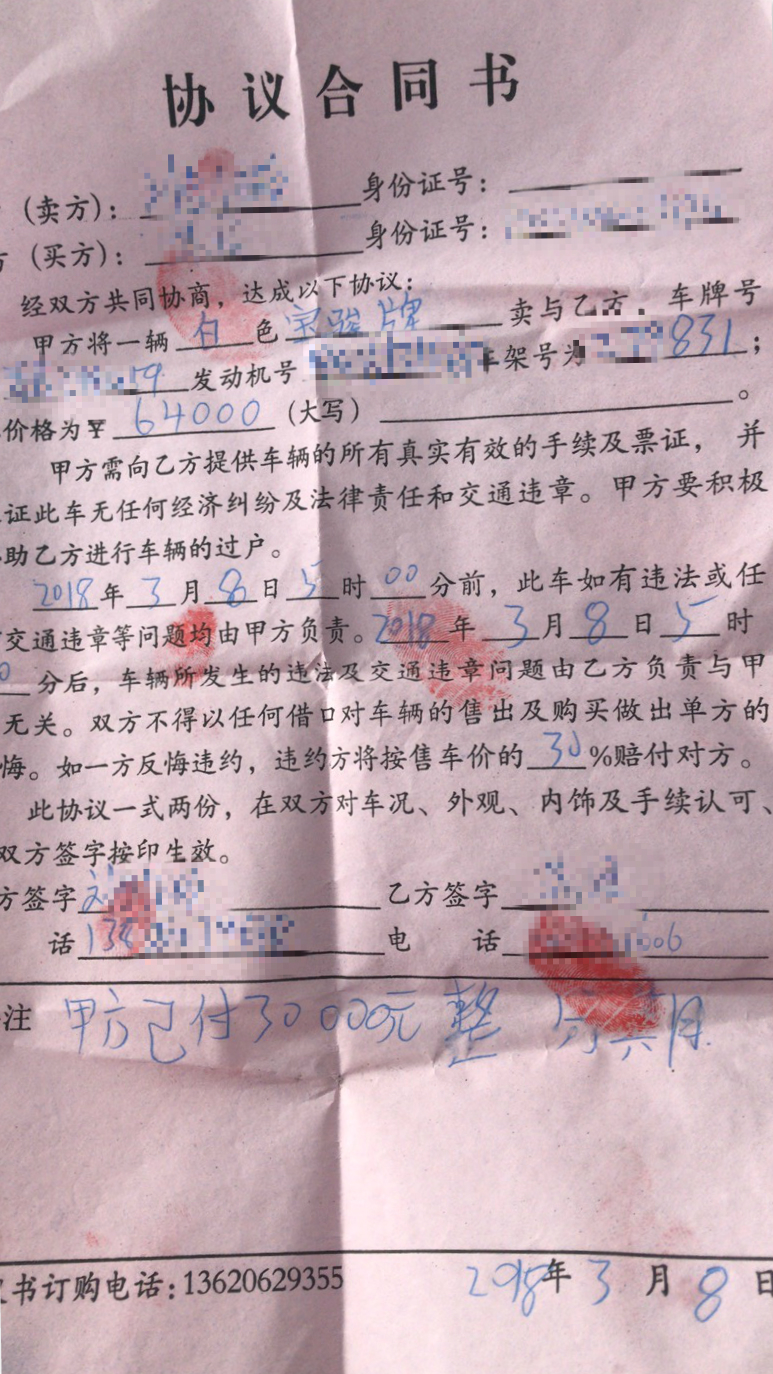 协议合同书
（卖方）： 身份证号：
方（买方）： 身份证号：
经双方共同协商，达成以下协议：
甲方将一辆白色宝骏牌卖与乙方，车牌号
59发动机号 车架号为 831；
价格为￥64000（大写） 。
甲方需向乙方提供车辆的所有真实有效的手续及票证，并
证此车无任何经济纠纷及法律责任和交通违章。甲方要积极
助乙方进行车辆的过户。
2018年3月8日5时00分前，此车如有违法或任
交通违章等问题均由甲方负责。2018年3月8日5时
0分后，车辆所发生的违法及交通违章问题由乙方负责与甲
无关。双方不得以任何借口对车辆的售出及购买做出单方的
悔。如一方反悔违约，违约方将按售车价的30%赔付对方。
此协议一式两份，在双方对车况、外观、内饰及手续认可、
双方签字按印生效。
方签字 乙方签字
话13 电话 606
注 甲方已付30000元整 月
书订购电话：13620629355 2018年3月8日